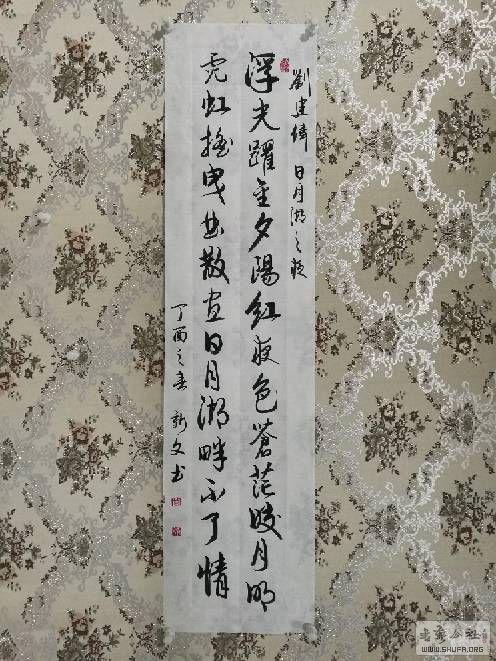 劉建偉 日月湖之夜
浮光躍金夕陽紅夜色蒼茫皎月明
霓虹搖曳曲散宜日月湖畔不了情
丁酉之春 新文书
书法公社
WWW.SHUFA.ORG